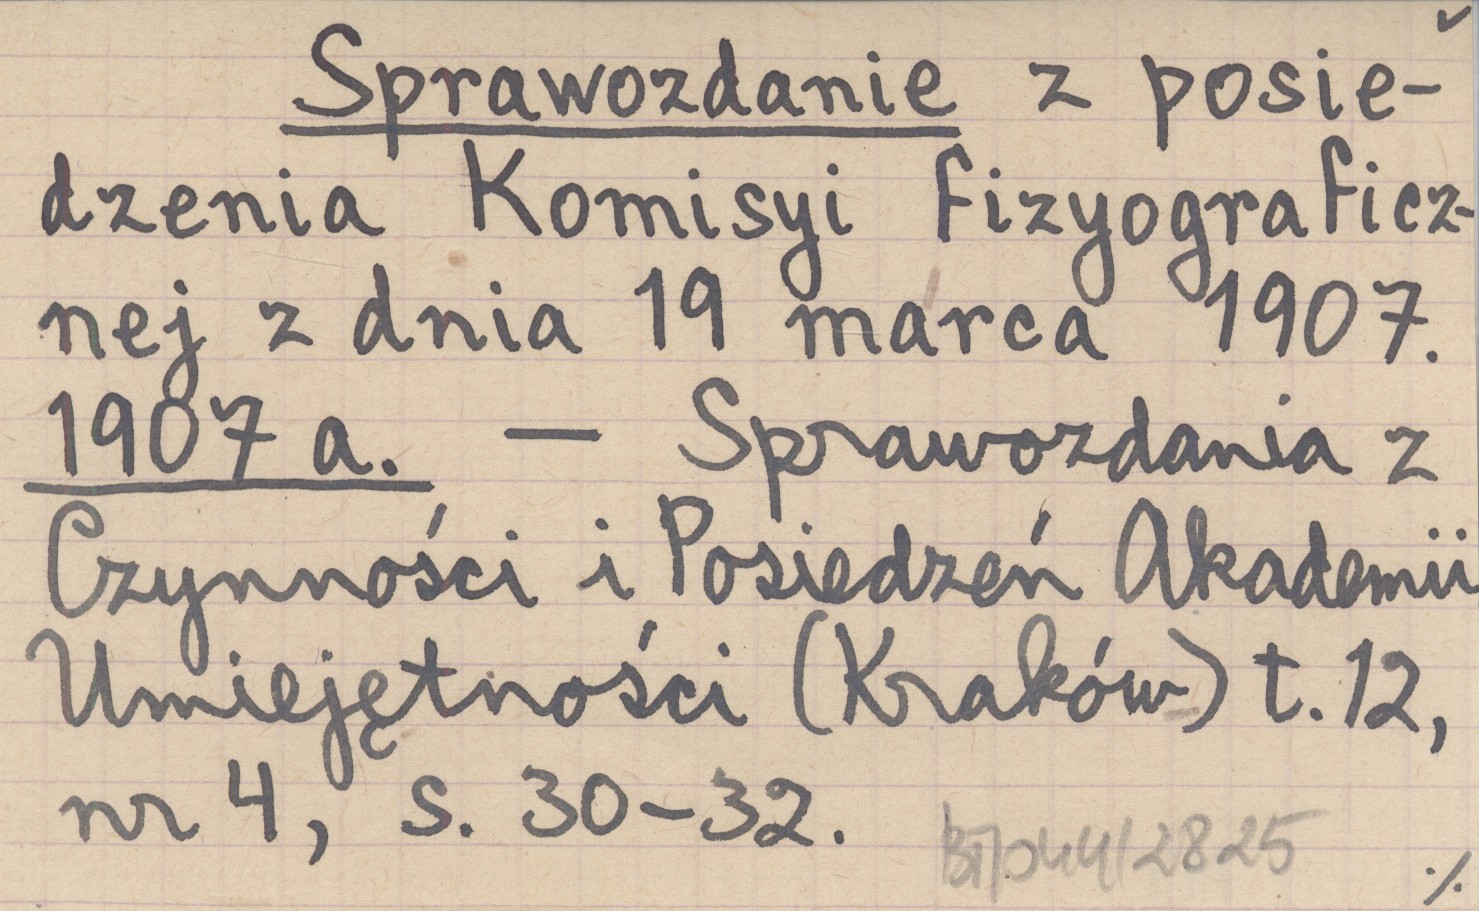 Sprawozdanie z posie-
dzenia Komisyi fizyograficz-
nej z dnia 19 marca 1907.
1907 a. — Sprawozdania z
Czynności i Posiedzeń Akademii
Umiejętności (Kraków) t. 12,
nr 4, s. 30-32.
2825
./.